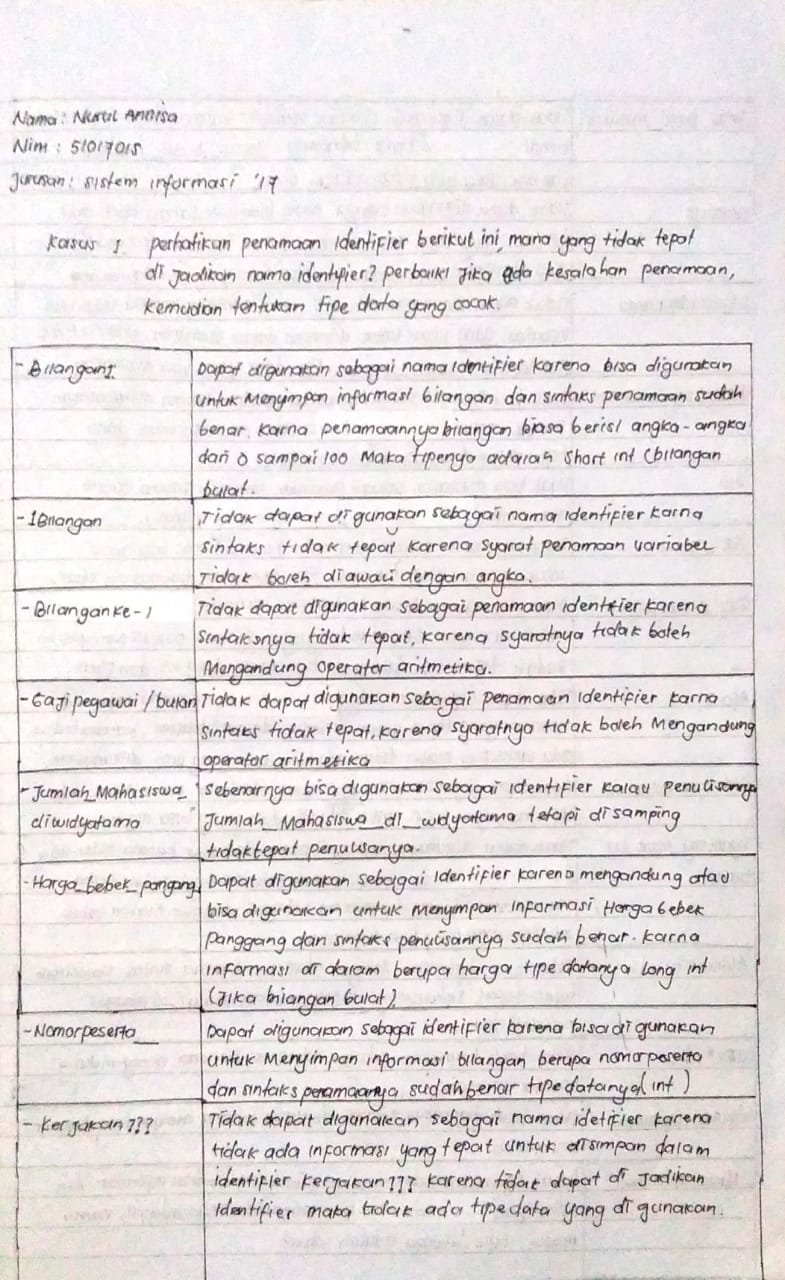 Nama : Nurul Annisa
Nim : 51017015
Jurusan : sistem informasi '17
Kasus 1 perhatikan penamaan identifier berikut ini, mana yang tidak tepat
di jadikan nama identifier? perbaiki jika ada kesalahan penamaan,
kemudian tentukan tipe data yang cocok.
- Bilangan1
Dapat digunakan sebagai nama identifier karena bisa digunakan
untuk Menyimpan informasi bilangan dan sintaks penamaan sudah
benar. karna penamaannya bilangan biasa berisi angka-angka
dari 0 sampai 100 Maka tipenya adalah short int (bilangan
bulat.
- 1Bilangan
Tidak dapat digunakan sebagai nama identifier karna
sintaks tidak tepat karena syarat penamaan variabel
Tidak boleh diawali dengan angka.
- Bilangan ke-1
Tidak dapat digunakan sebagai penamaan identifier karena
Sintaksnya tidak tepat, karena syaratnya tidak boleh
Mengandung operator aritmetika.
- Gaji pegawai / bulan
Tidak dapat digunakan sebagai penamaan identifier karna
sintaks tidak tepat, karena syaratnya tidak boleh Mengandung
operator aritmetika
- Jumlah_Mahasiswa_
diwidyatama
Sebenarnya bisa digunakan sebagai identifier kalau penulisannya
Jumlah_Mahasiswa_di_widyatama tetapi disamping
tidak tepat penulisanya.
- Harga_bebek_pangang
Dapat digunakan sebagai identifier karena mengandung atau
bisa digunakan untuk menyimpan informasi Harga bebek
Panggang dan sintaks penulisannya sudah benar. karna
informasi di dalam berupa harga tipe datanya long int
(jika bilangan bulat).
- Nomorpeserta__
Dapat digunakan sebagai identifier karena bisa di gunakan
untuk Menyimpan informasi bilangan berupa nomor peserta
dan sintaks penamaanya sudah benar tipe datanya (int)
- Kerjakan???
Tidak dapat digunakan sebagai nama idetifier karena
tidak ada informasi yang tepat untuk disimpan dalam
identifier kerjakan??? karena tidak dapat di jadikan
identifier maka tidak ada tipe data yang di gunakan.